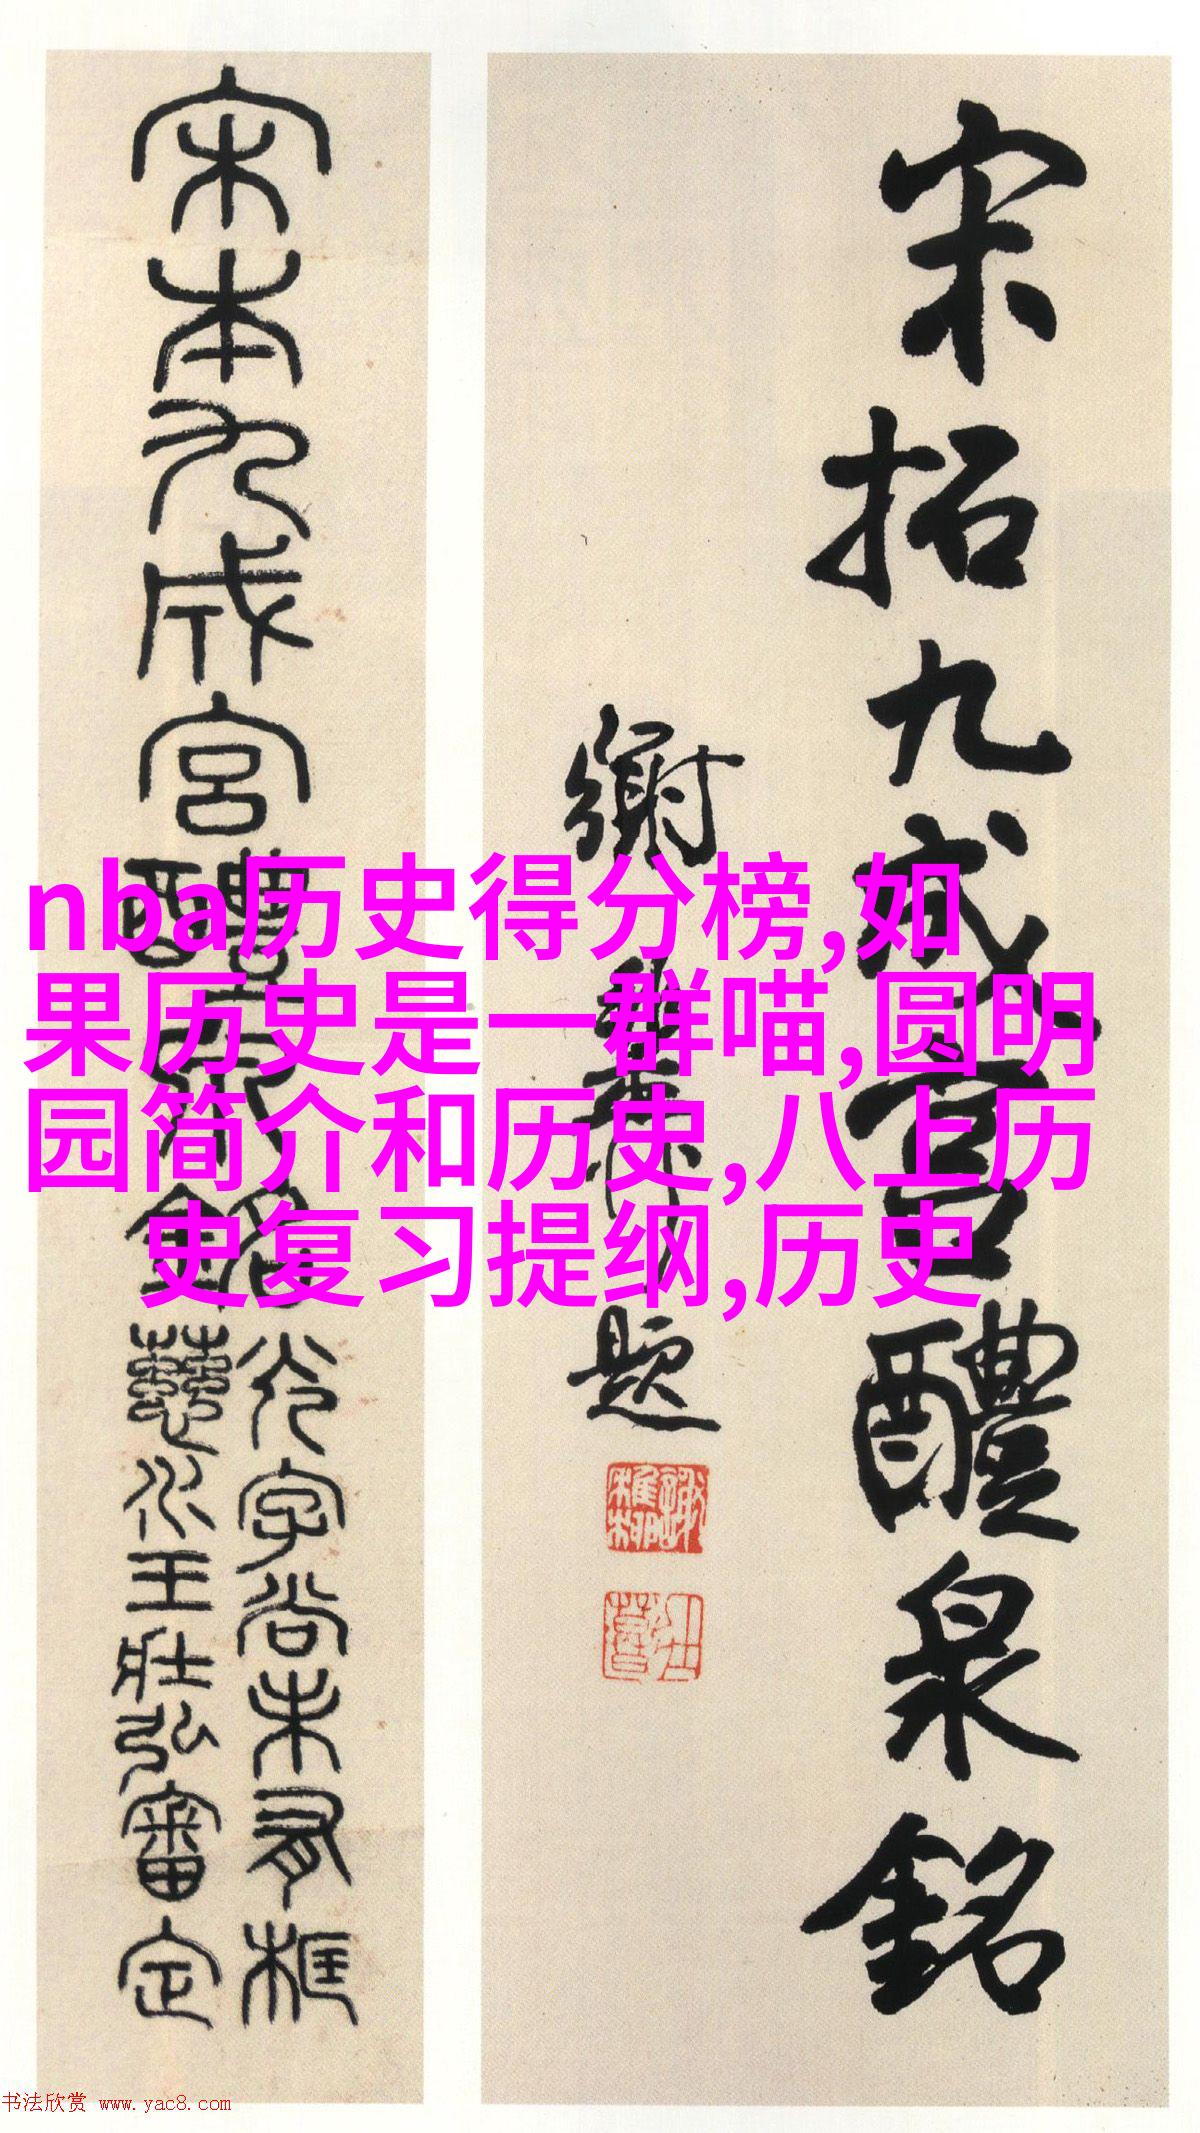 宋拓九成宫醴泉銘
題
宋本九成宮醴泉銘
字尚未
王壮弘審定
nba历史得分榜,如
果历史是一群喵,圆明
园简介和历史,八上历
史复习提纲,历史
书法欣赏 www.yac8.com